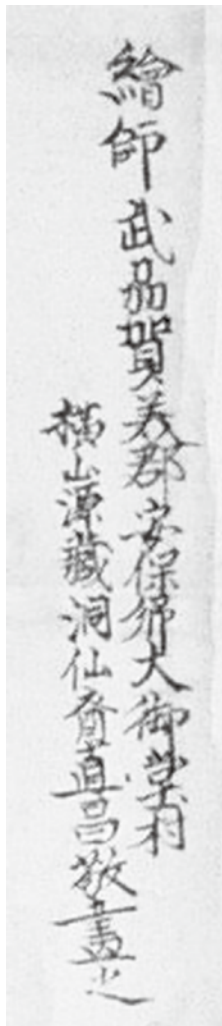 繪師武品賀美郡安保郷大御堂村
横山源藏洞仙齋直昌敬畫之